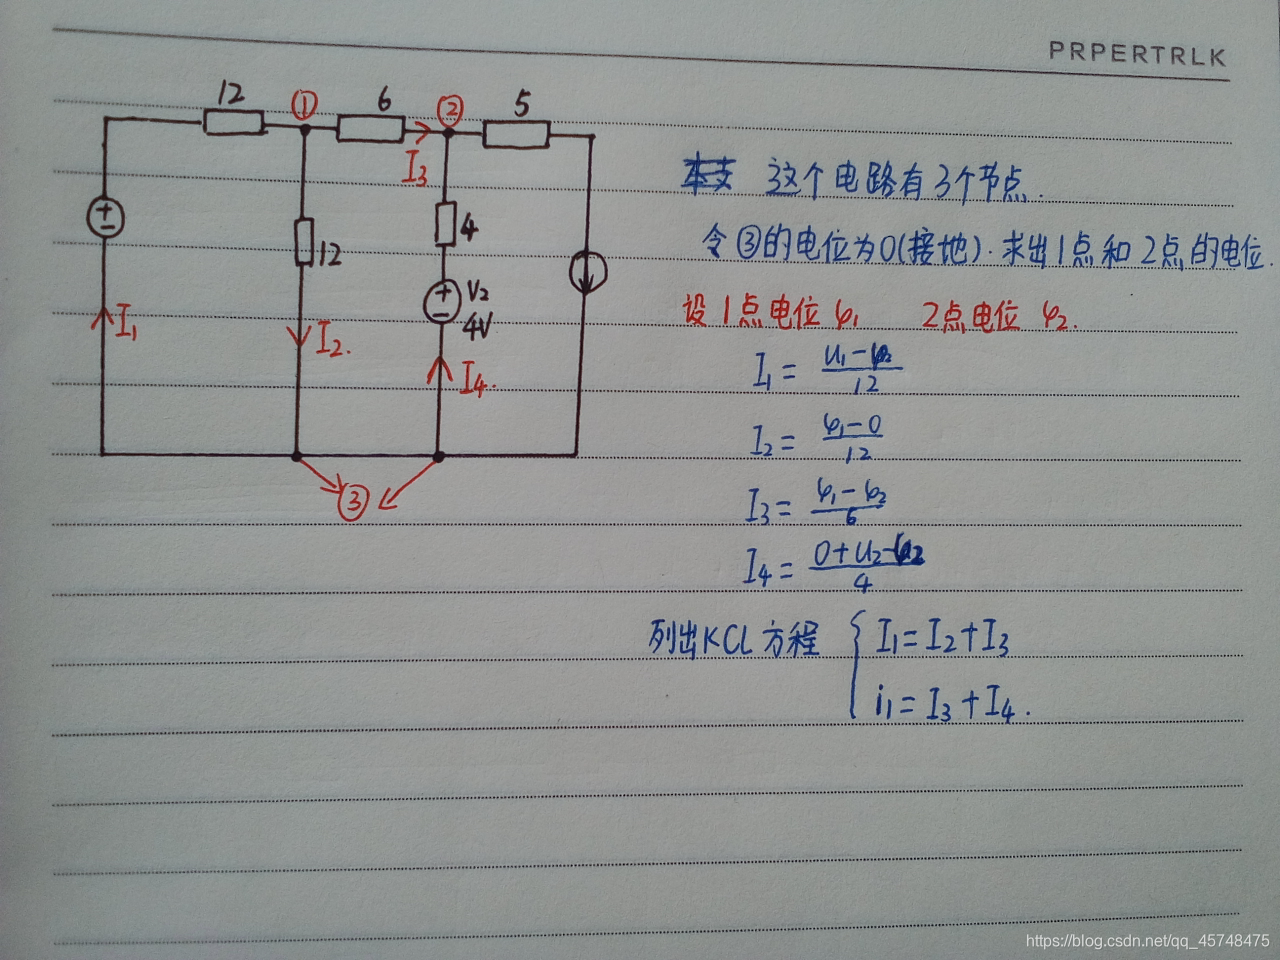 PRPERTRLK
12
①
6
②
5
I₃
12
4
V₂
4V
I₁
I₂.
I₄.
③
这个电路有3个节点.
令③的电位为0(接地).求出1点和2点的电位.
设1点电位φ₁ 2点电位φ₂.
I₂ = (φ₁-0)/12
I₃ = (φ₁-φ₂)/6
I₄ = (0+U₂-φ₂)/4
列出KCL方程 { I₁=I₂+I₃
i₁=I₃+I₄.
https://blog.csdn.net/qq_45748475